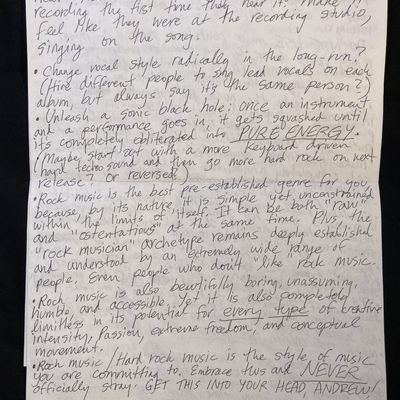 recording the first time they hear it. Make it
feel like they were at the recording studio,
singing on the song.
• Change vocal style radically in the long-run?
(Hire different people to sing lead vocals on each
album, but always say it's the same person?)
• Unleash a sonic black hole: once an instrument
and a performance goes in, it gets squashed until
it's completely obliterated into PURE ENERGY.
(Maybe start out with a more keyboard driven
hard techno sound and then go more hard rock on next
release? Or reversed?)
• Rock music is the best pre-established genre for you,
because, by its nature, it is simple yet unconstrained
within the limits of itself. It can be both "raw"
and "ostentatious" at the same time. Plus, the
"rock musician" archetype remains deeply established
and understood by an extremely wide range of
people. Even people who don't "like" rock music.
• Rock music is also beautifully boring, unassuming,
humble and accessible, yet it is also completely
limitless in its potential for every type of creative
intensity, passion, extreme freedom, and conceptual
movement.
• Rock music / Hard rock music is the style of music
you are committing to. Embrace this and NEVER
officially stray. GET THIS INTO YOUR HEAD, ANDREW!